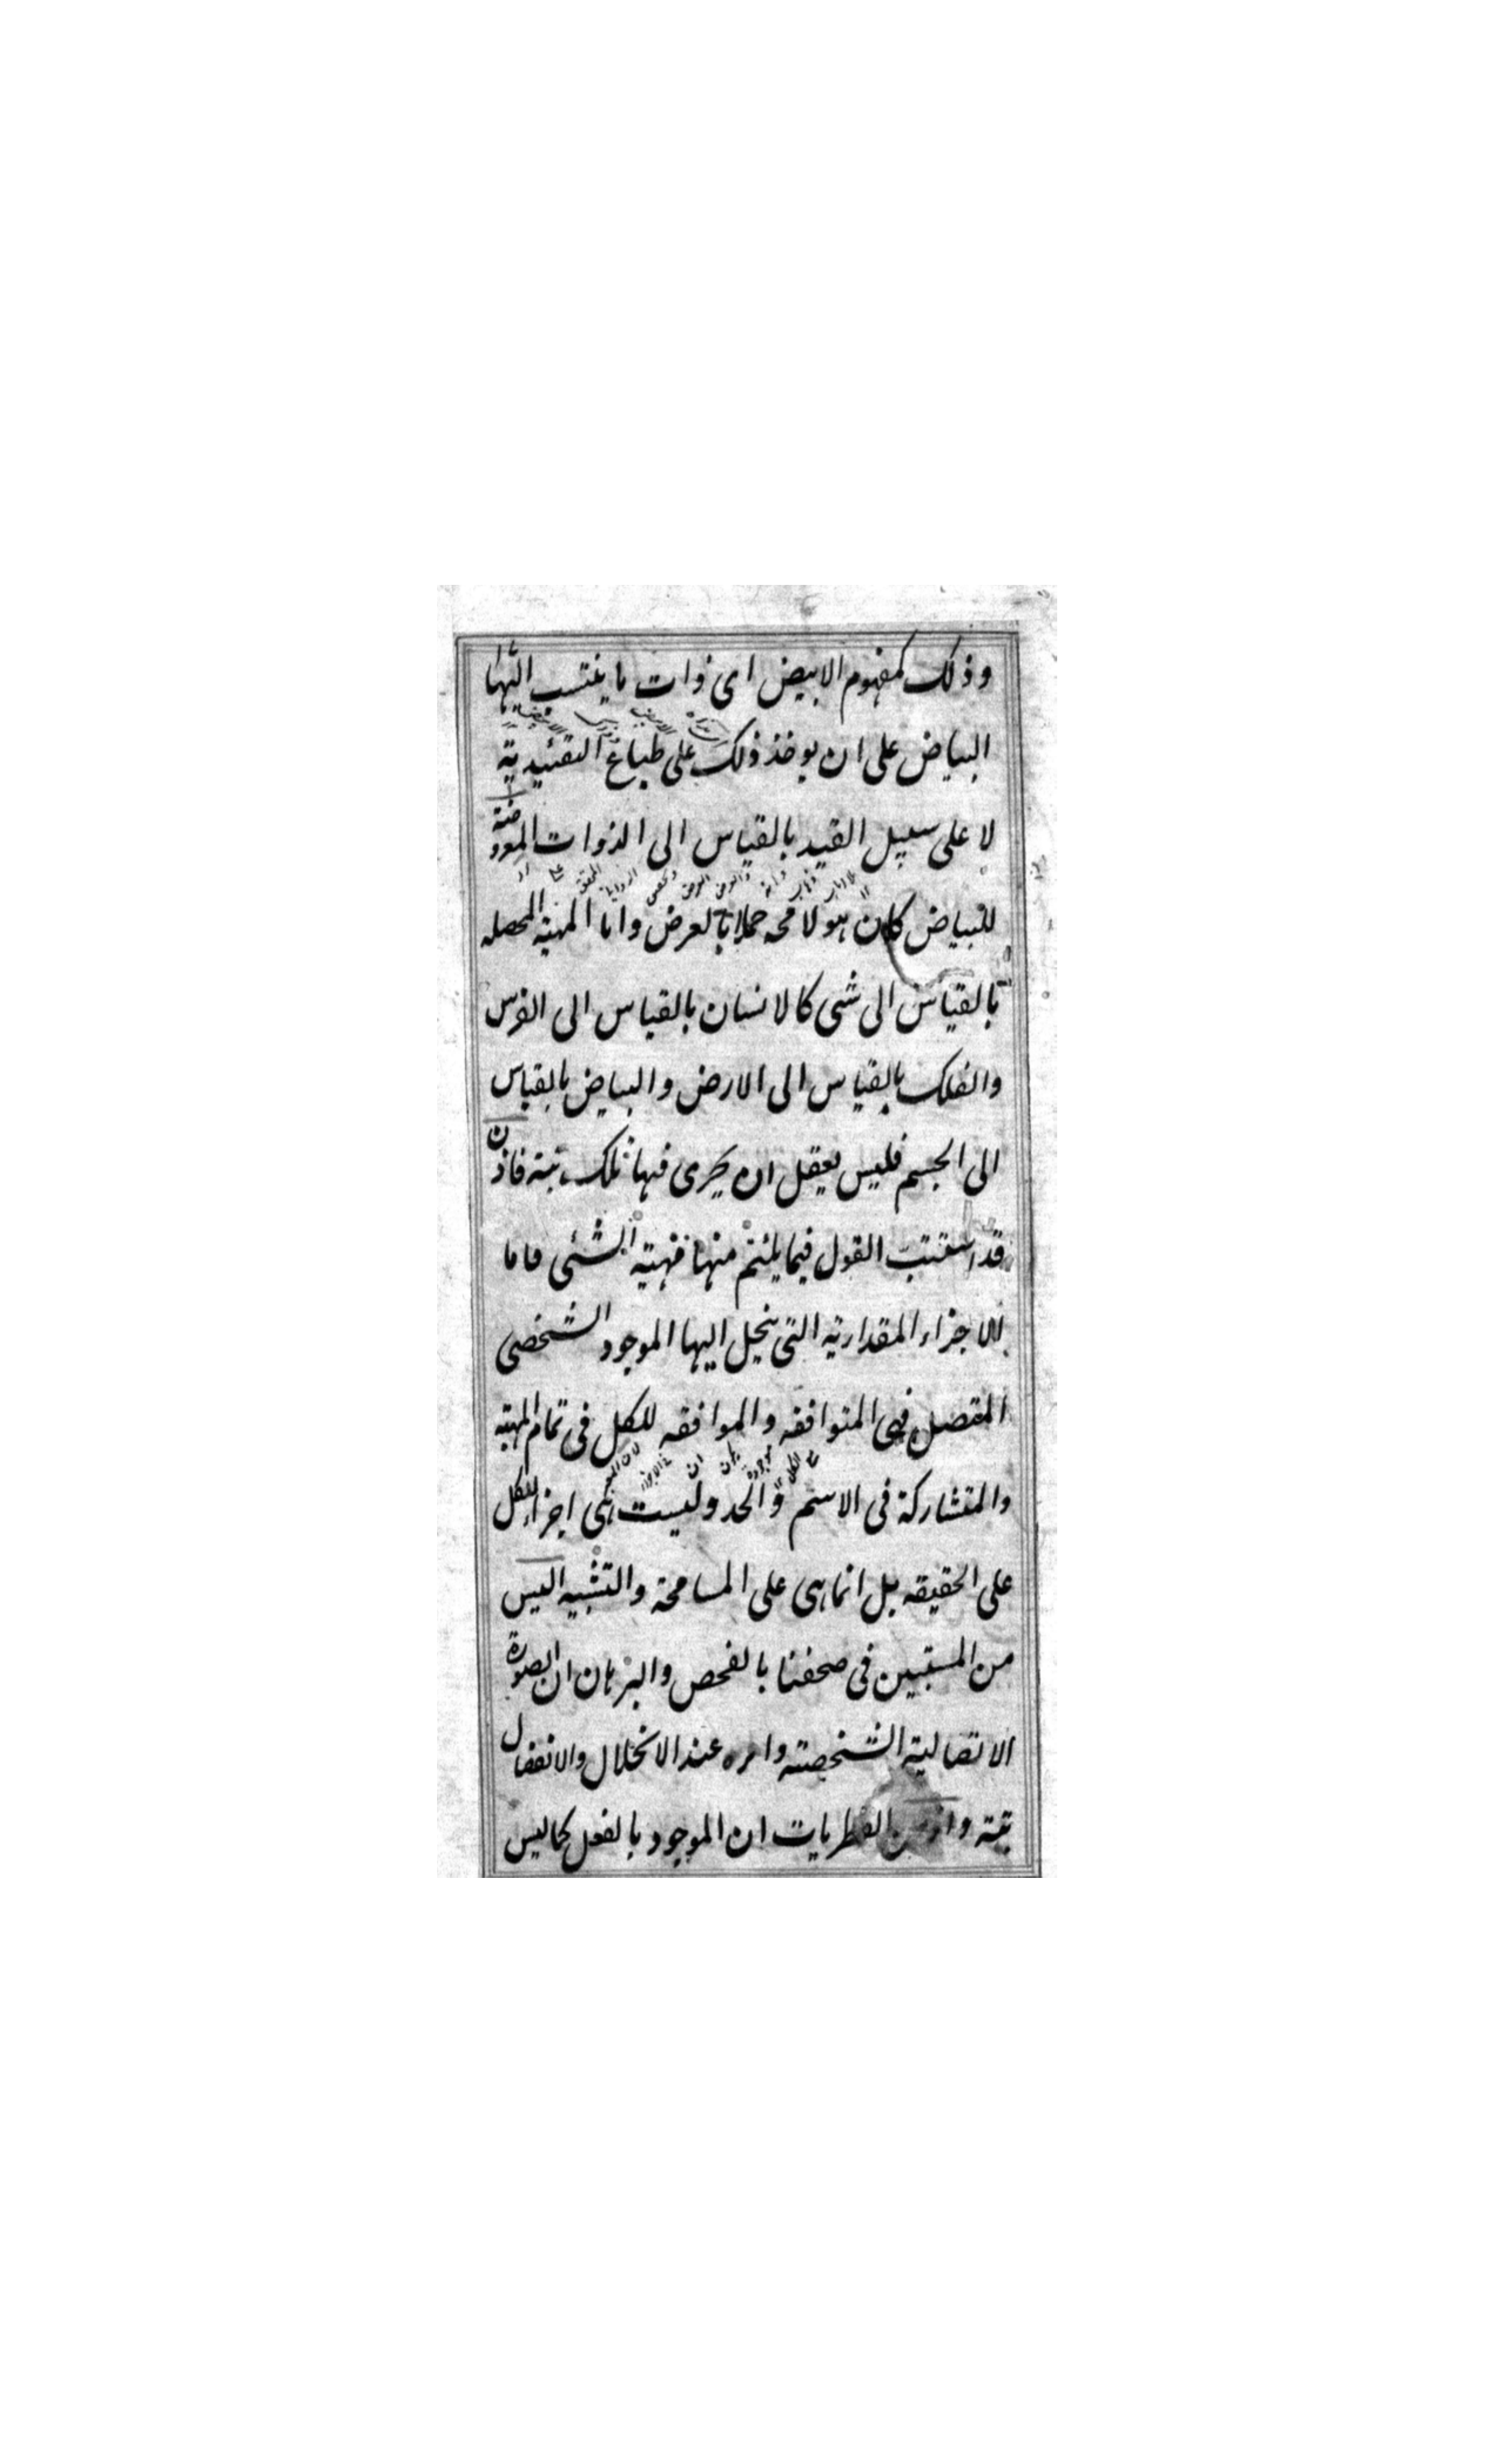 وذلك كمفهوم الابيض اى ذوات ما ينتسب اليها
البياض على ان يوخذ ذلك على طباع التقييدية
لا على سبيل القيد بالقياس الى الذوات المعروضة
للبياض كان هو لا محه حملا بالعرض واما المهية المحصله
بالقياس الى شى كالانسان بالقياس الى الفرس
والفلك بالقياس الى الارض والبياض بالقياس
الى الجسم فليس يعقل ان يجرى فيها ذلك بتة فاذن
قد استتب القول فيما يلتئم منها مهية الشئى فاما
الاجزاء المقدارية التى ينحل اليها الموجود الشخصى
المتصل فهى المتوافقه والموافقه للكل فى تمام المهية
والمتشاركة فى الاسم والحد وليست هى اجزاء للكل
على الحقيقه بل انما هى على المسامحة والتشبيه اليس
من المستبين فى صحفنا بالفحص والبرهان ان الصورة
الاتصالية الشخصية داثره عند الانحلال والانفصال
بتة وان من الفطريات ان الموجود بالفعل كما ليس